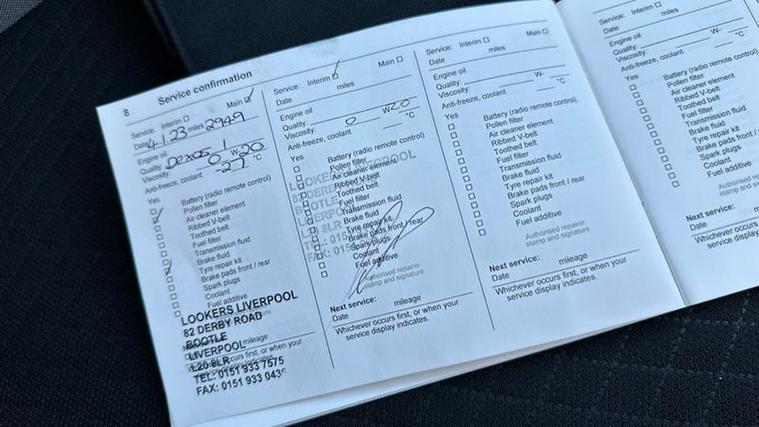 8 Service confirmation
Service: Interim Main
Date 4.1.23 miles 2949
Engine oil
Quality: Dexos 1
Viscosity: 0 W- 20
Anti-freeze, coolant -27 °C
Yes
Battery (radio remote control)
Pollen filter
Air cleaner element
Ribbed V-belt
Toothed belt
Fuel filter
Transmission fluid
Brake fluid
Tyre repair kit
Brake pads front / rear
Spark plugs
Coolant
Fuel additive
LOOKERS LIVERPOOL
82 DERBY ROAD
BOOTLE
mileage
LIVERPOOL
L20 8LR
TEL: 0151 933 7575
FAX: 0151 933 043
Service: Interim Main
Date miles
Engine oil
Quality:
Viscosity: 0 W20
Anti-freeze, coolant °C
Yes
Battery (radio remote control)
Pollen filter
Air cleaner element
Ribbed V-belt
Toothed belt
Fuel filter
Transmission fluid
Brake fluid
Tyre repair kit
Brake pads front / rear
Spark plugs
Coolant
Fuel additive
LOOKERS LIVERPOOL
Authorised repairer
stamp and signature
Next service:
Date mileage
Whichever occurs first, or when your
service display indicates.
Service: Interim Main
Date miles
Engine oil
Quality:
Viscosity: W-
Anti-freeze, coolant °C
Yes
Battery (radio remote control)
Pollen filter
Air cleaner element
Ribbed V-belt
Toothed belt
Fuel filter
Transmission fluid
Brake fluid
Tyre repair kit
Brake pads front / rear
Spark plugs
Coolant
Fuel additive
Authorised repairer
stamp and signature
Next service:
Date mileage
Whichever occurs first, or when your
service display indicates.
Service: Interim
Date miles
Engine oil
Quality:
Viscosity:
Anti-freeze, coolant
Yes
Battery (radio remote
Pollen filter
Air cleaner element
Ribbed V-belt
Toothed belt
Fuel filter
Transmission fluid
Brake fluid
Tyre repair kit
Brake pads front
Spark plugs
Coolant
Fuel additive
Authorised
stamp and
Next service:
Date mileage
Whichever occurs first,
service display